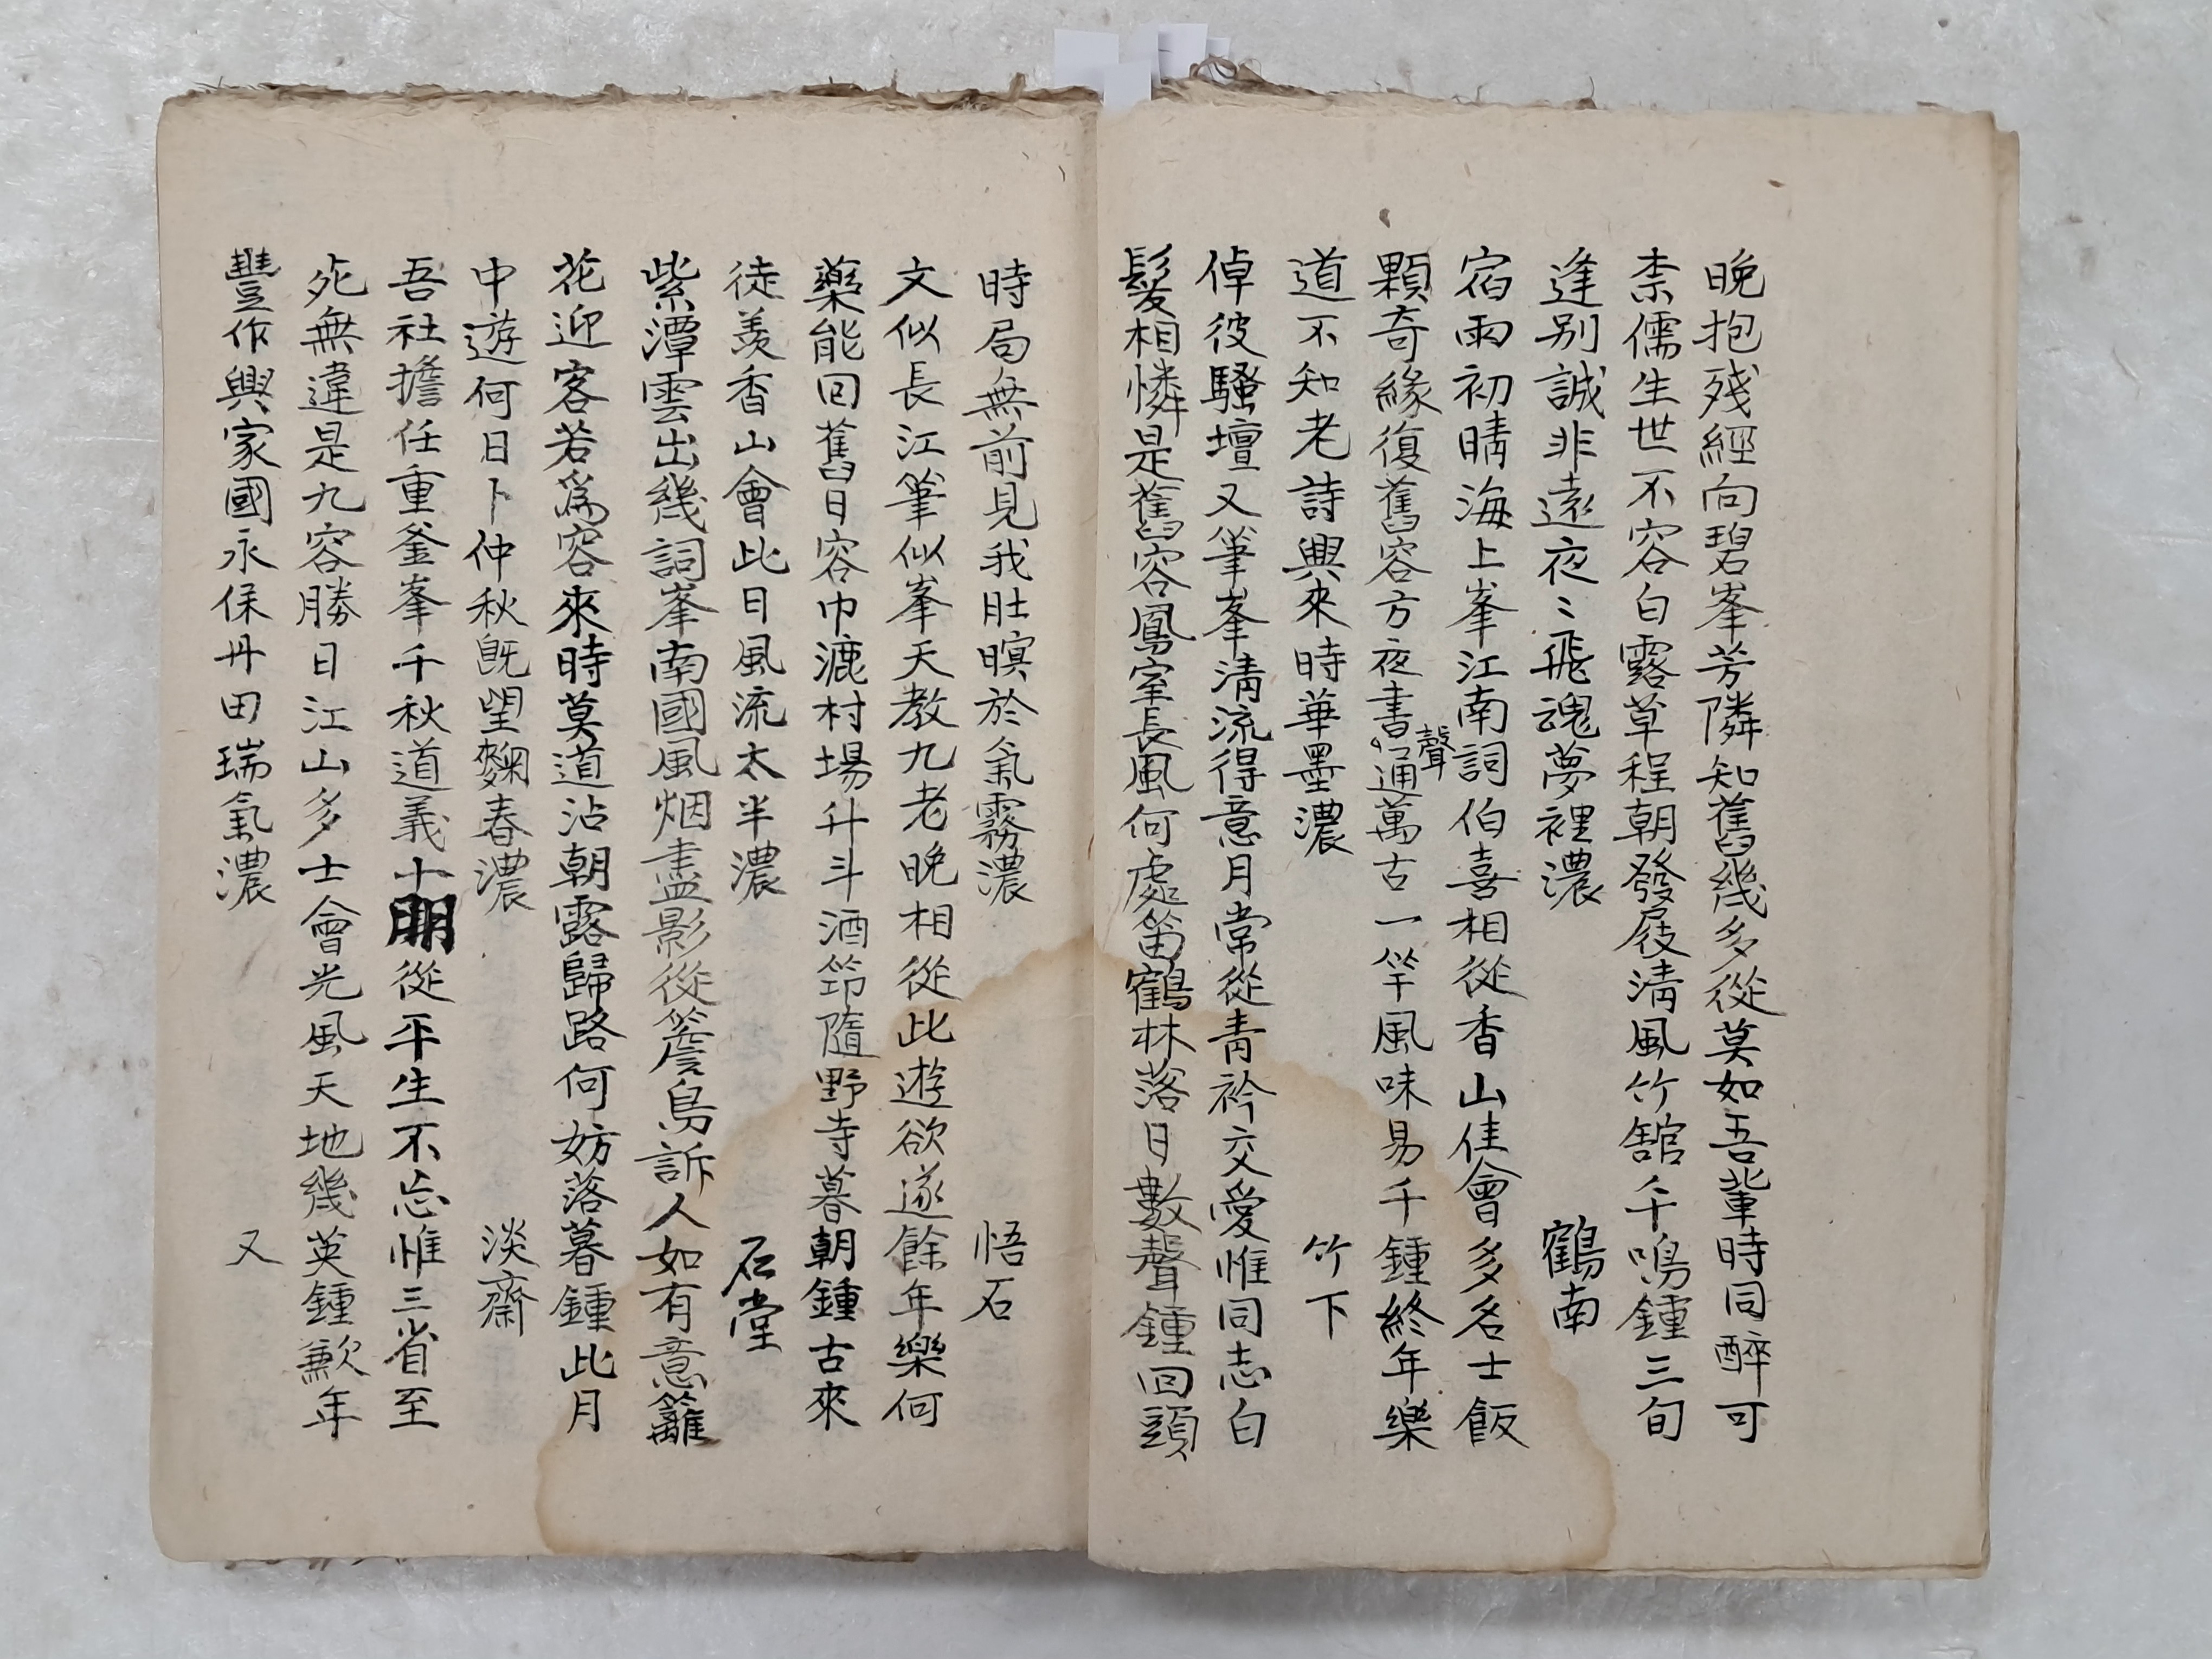 晚抱殘經向碧峯芳隣知舊幾多從莫如吾輩時同醉可
柰儒生世不容白露草程朝發屐淸風竹舘千鳴鍾三旬
逢别誠非遠夜〻飛魂夢裡濃 鶴南
宿雨初晴海上峯江南詞伯喜相從香山佳會多名士飯
顆奇緣復舊容方夜書聲通萬古一竿風味易千鍾終年樂
道不知老詩興來時華墨濃 竹下
倬彼騷壇又筆峯淸流得意月常從靑衿交愛惟同志白
髮相憐是舊容鳳室長風何處笛鶴林落日數聲鍾回頭
時局無前見我肚暝於氣霧濃 悟石
文似長江筆似峯天教九老晚相從此遊欲遂餘年樂何
藥能回舊日容巾漉村場升斗酒笻隨野寺暮朝鍾古來
徒羡香山會此日風流太半濃 石堂
紫潭雲出幾詞峯南國風烟盡影從簷鳥訴人如有意籬
花迎客若爲容來時莫道沾朝露歸路何妨落暮鍾此月
中遊何日卜仲秋旣望麴春濃 淡齋
吾社擔任重釜峯千秋道義十朋從平生不忘惟三省至
死無違是九容勝日江山多士會光風天地幾英鍾歉年
豐作興家國永保丹田瑞氣濃 又